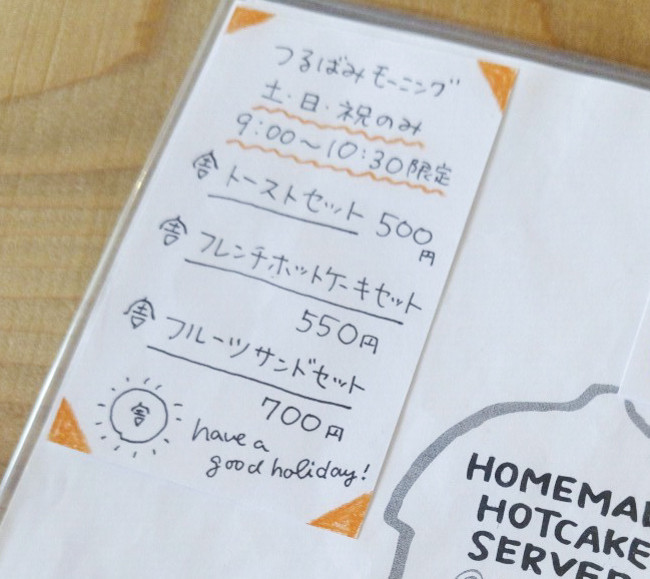 つるばみモーニング
土・日・祝のみ
9:00〜10:30限定
舎 トーストセット 500円
舎 フレンチホットケーキセット
550円
舎 フルーツサンドセット
700円
舎
have a
good holiday!
HOMEMA
HOTCAKE
SERVE